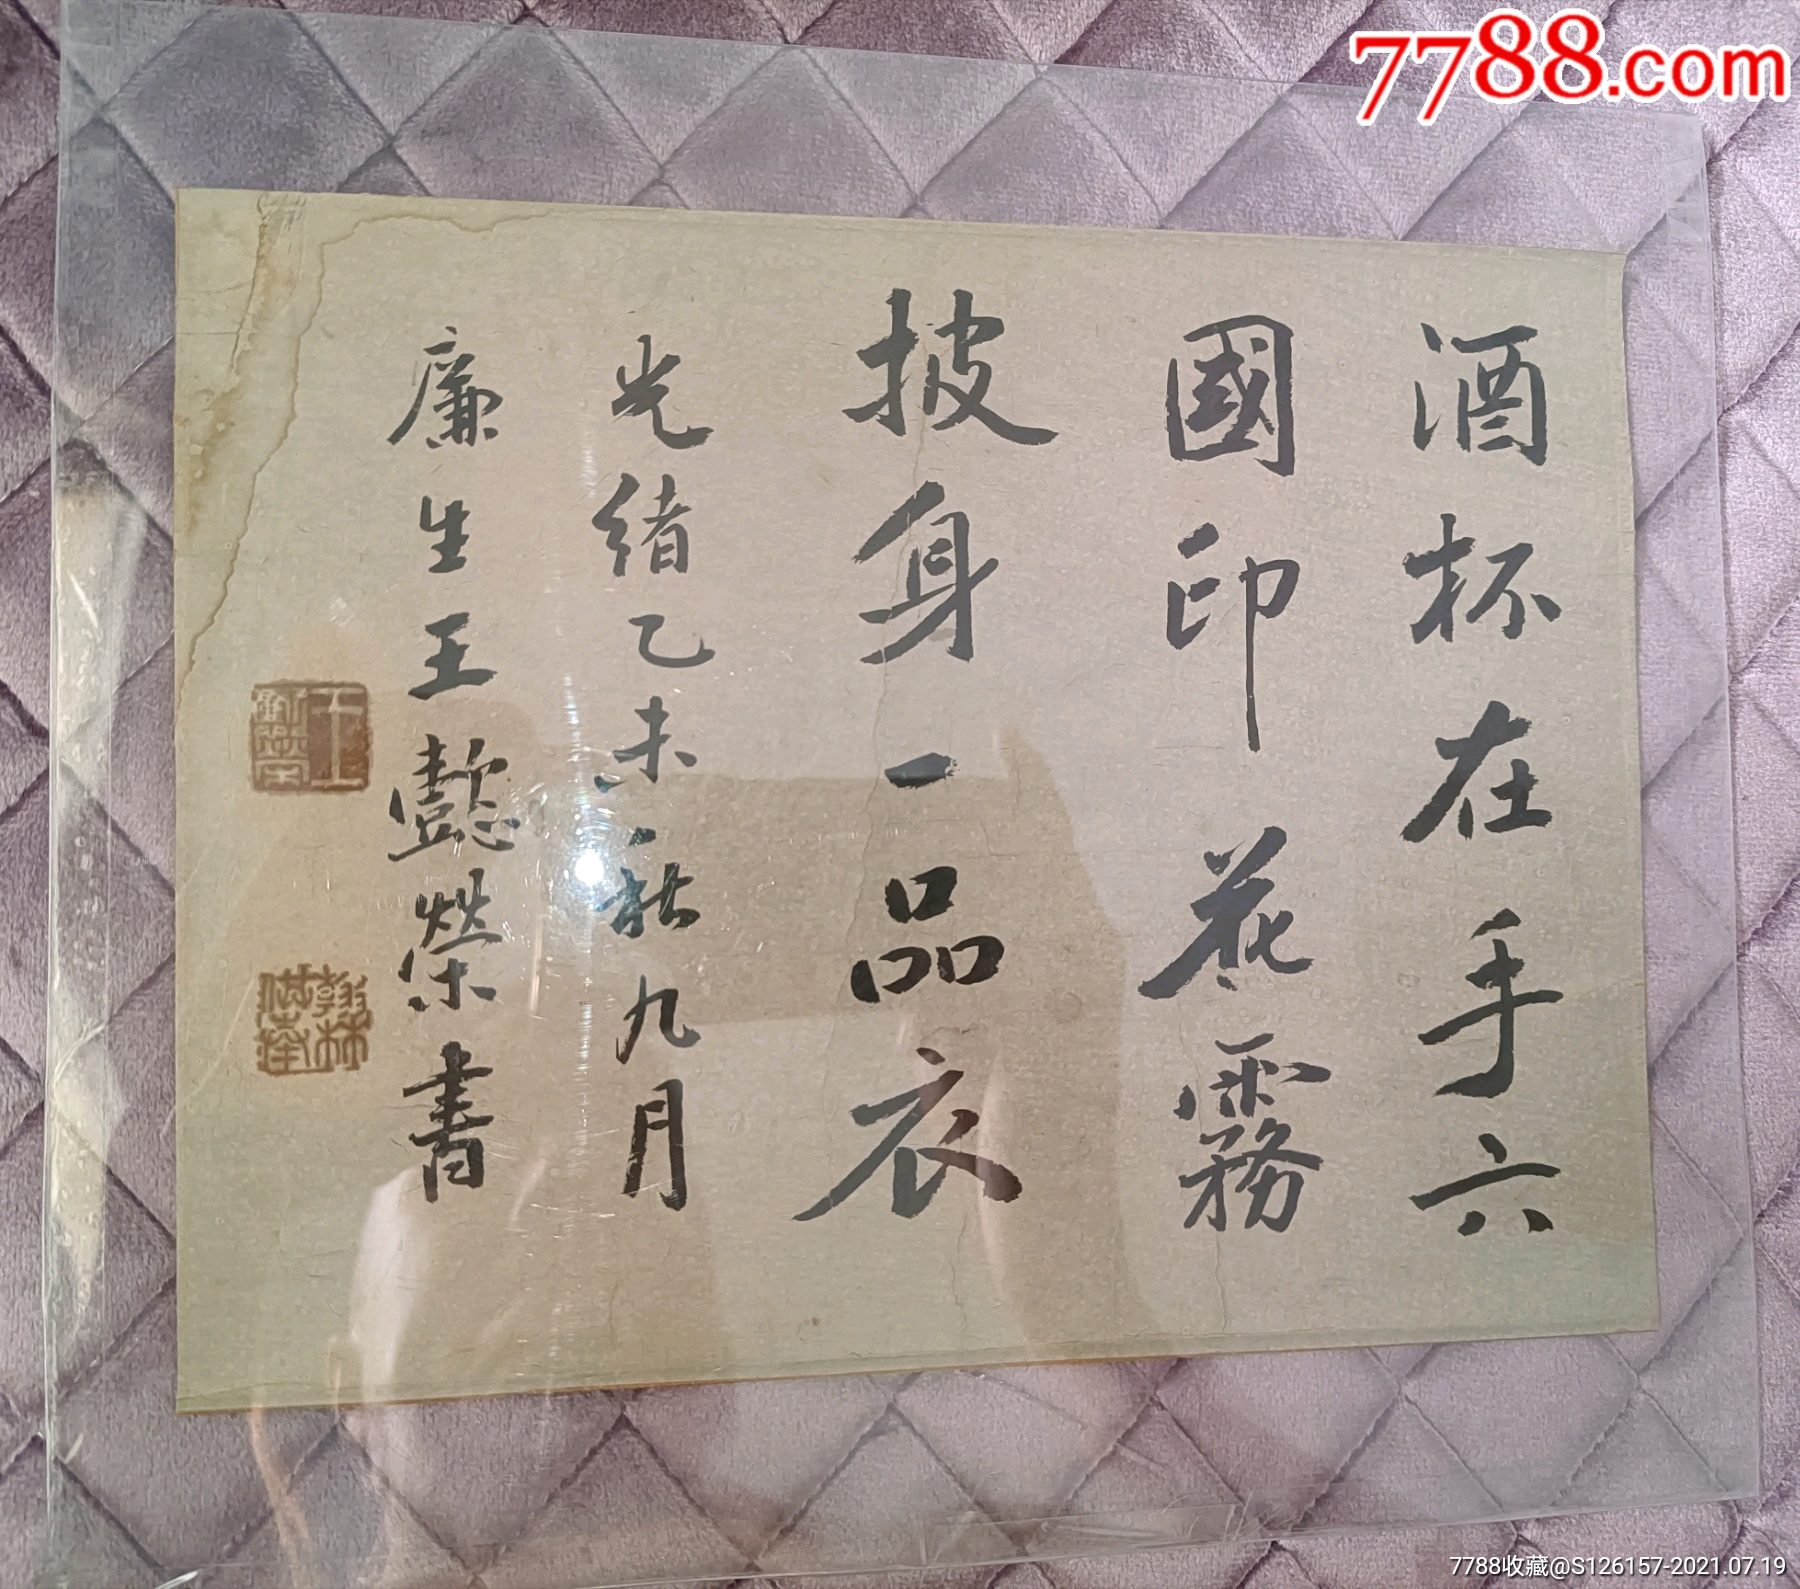 7788.com
酒杯在手六
國印花霧
披身一品衣
光绪乙未秋九月
廉生王懿榮書
王懿榮
翰林供奉
7788收藏@S126157-2021.07.19